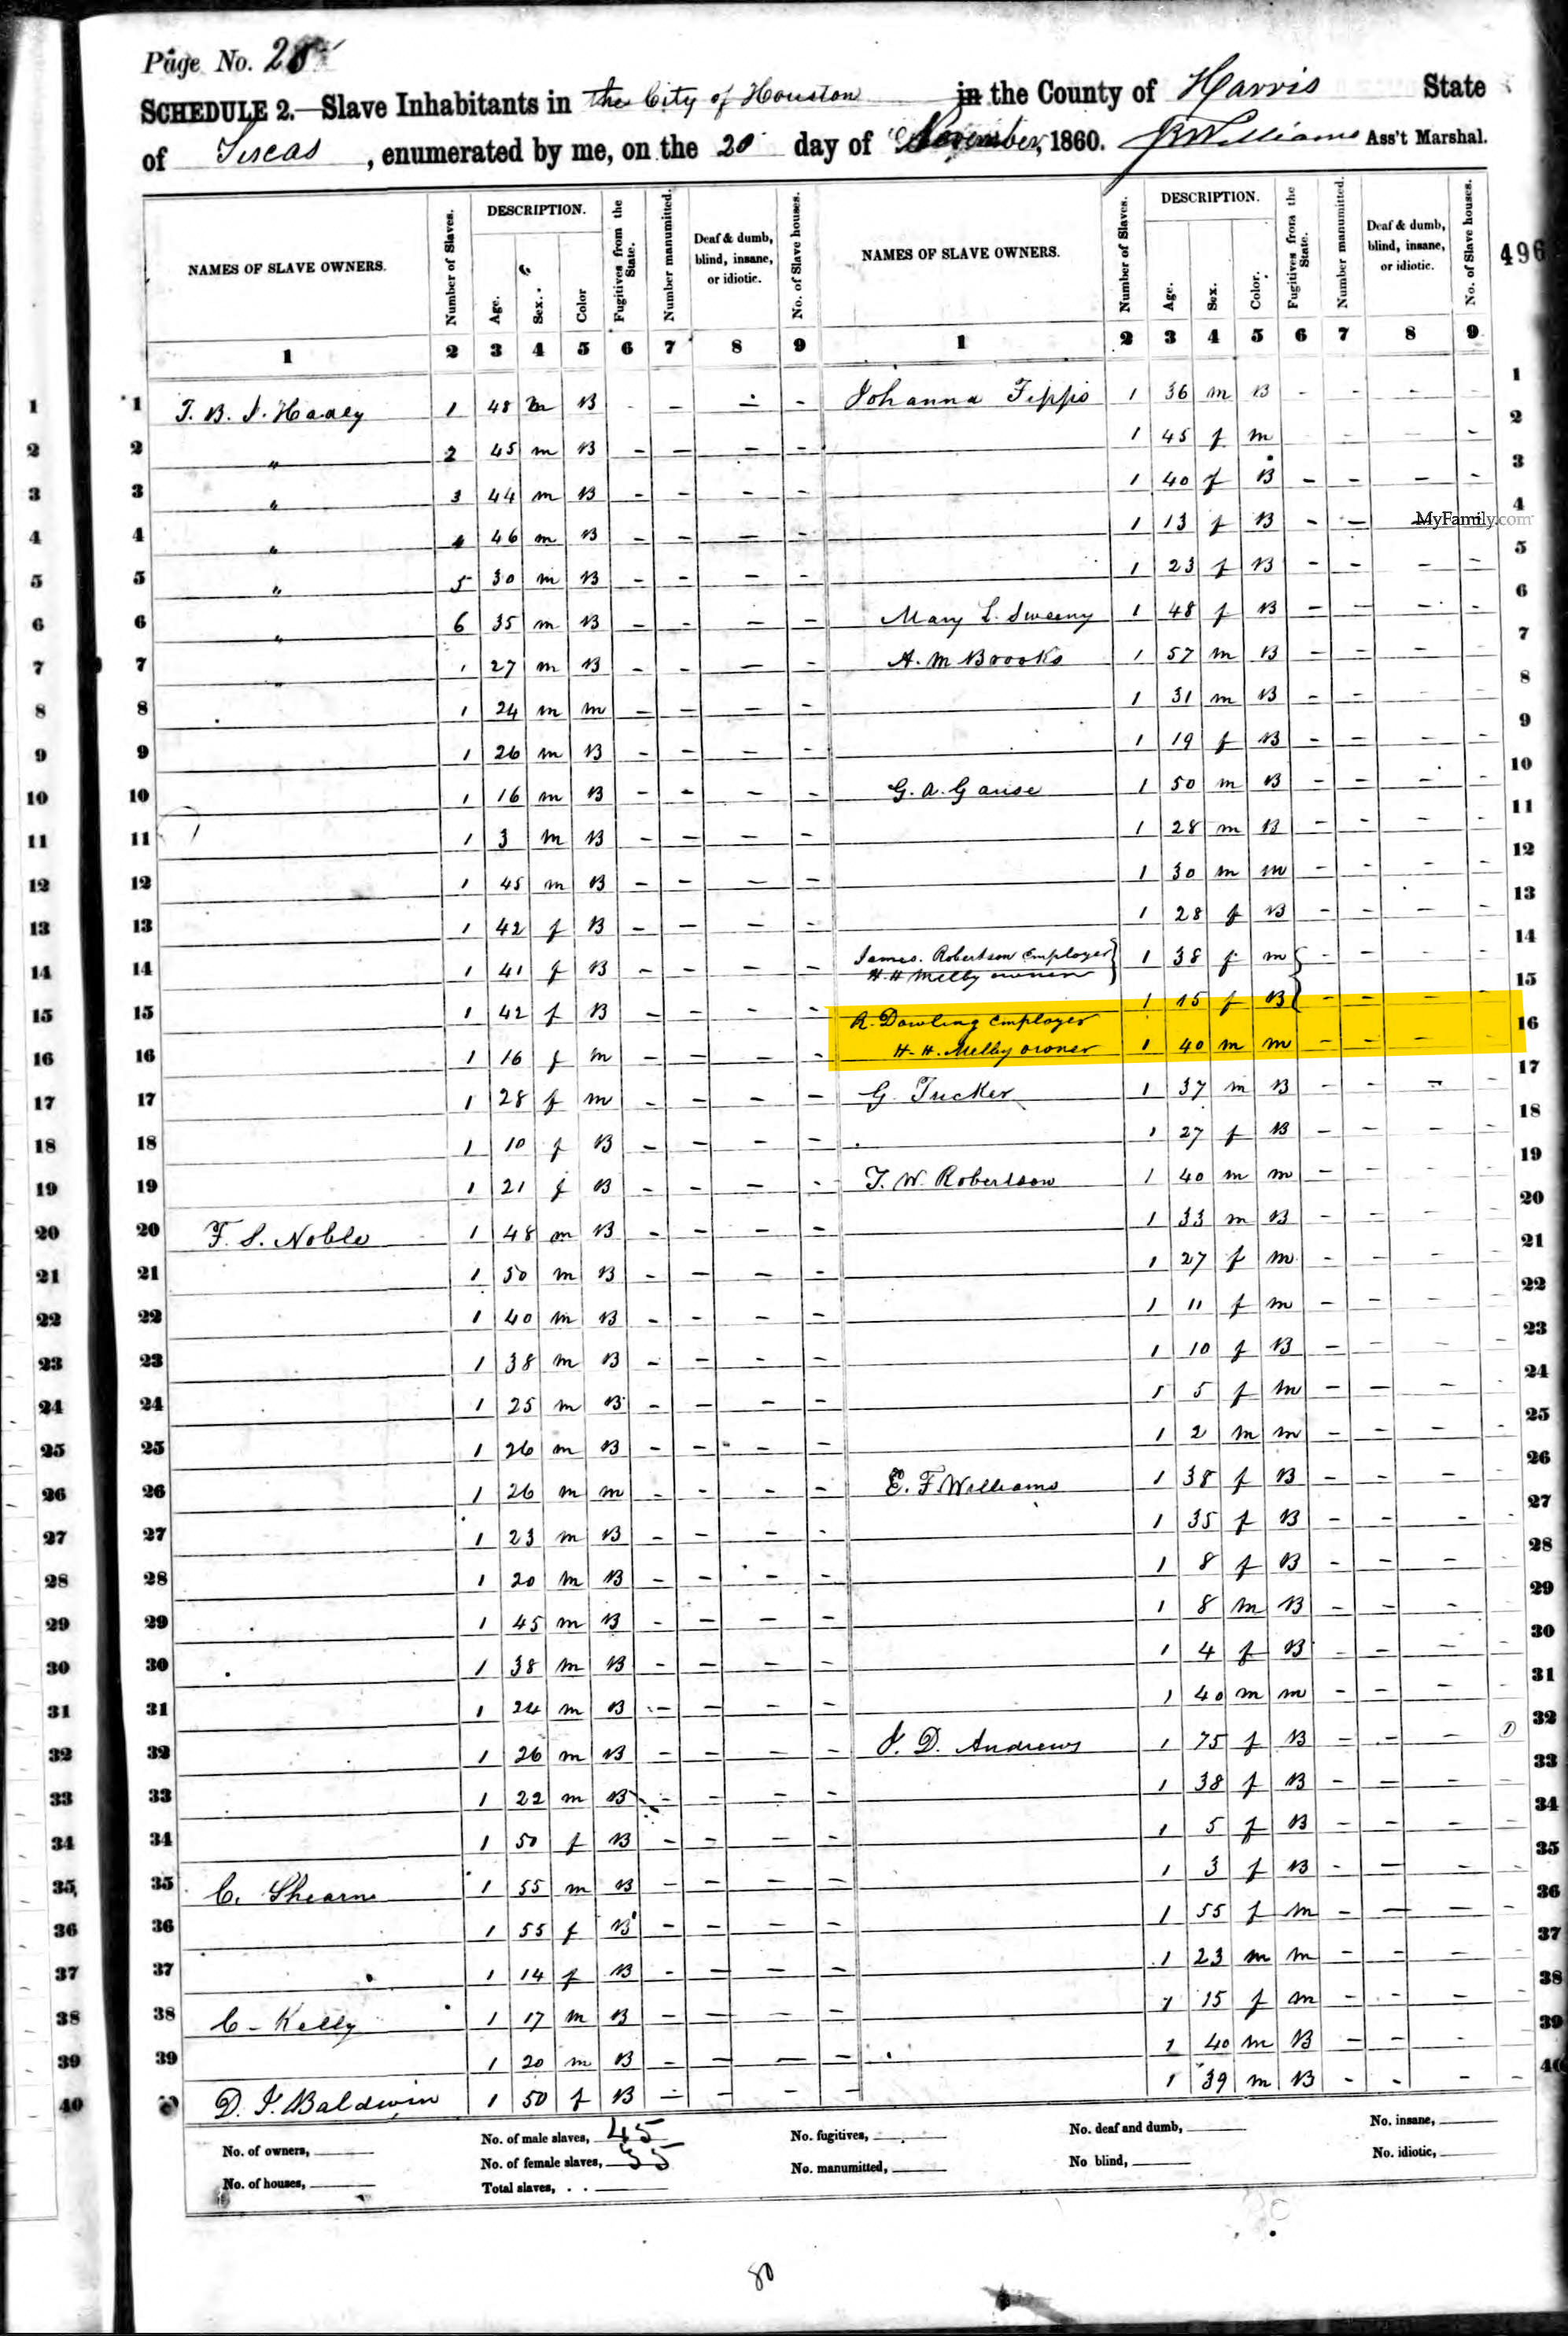 Page No. 28
SCHEDULE 2.—Slave Inhabitants in the City of Houston in the County of Harris State
of Texas, enumerated by me, on the 20 day of November, 1860. Williams Ass't Marshal.
496
NAMES OF SLAVE OWNERS. | Number of Slaves. | DESCRIPTION. Age. Sex. Color | Fugitives from the State. | Number manumitted. | Deaf & dumb, blind, insane, or idiotic. | No. of Slave houses. | NAMES OF SLAVE OWNERS. | Number of Slaves. | DESCRIPTION. Age. Sex. Color. | Fugitives from the State. | Number manumitted. | Deaf & dumb, blind, insane, or idiotic. | No. of Slave houses.
1 2 3 4 5 6 7 8 9 1 2 3 4 5 6 7 8 9
1 T. B. J. Hadley 1 48 m B - - - - Johanna 1 36 m B - - - 1
2 " 2 45 m B - - - - 1 45 f m - - - 2
3 " 3 44 m B - - - - 1 40 f B - - - - 3
4 " 4 46 m B - - - - 1 13 f B - - - 4
MyFamily.com
5 " 5 30 m B - - - - 1 23 f B - - - - 5
6 " 6 35 m B - - - - Mary L. Sweeny 1 48 f B - - - - 6
7 " 1 27 m B - - - - A. M Brooks 1 57 m B - - - - 7
8 1 24 m m - - - - 1 31 m B - - - - 8
9 1 26 m B - - - - 1 19 f B - - - - 9
10 1 16 m B - - - - G. A. Gause 1 50 m B - - - - 10
11 1 3 m B - - - - 1 28 m B - - - - 11
12 1 45 m B - - - - 1 30 m m - - - - 12
13 1 42 f B - - - - 1 28 f B - - - - 13
14 1 41 f B - - - - James. Robertson Employer H. H Melby owner 1 38 f m - - - - 14
15 1 42 f B - - - - 1 15 f B - - - - 15
16 1 16 f m - - - - R. Dowling Employer H. H. Melby owner 1 40 m m - - - - 16
17 1 28 f m - - - - G. Tucker 1 37 m B - - - - 17
18 1 10 f B - - - - 1 27 f B - - - - 18
19 1 21 f B - - - - T. W. Robertson 1 40 m m - - - - 19
20 F. S. Noble 1 48 m B - - - - 1 33 m B - - - - 20
21 1 50 m B - - - - 1 27 f m - - - - 21
22 1 40 m B - - - - 1 11 f m - - - - 22
23 1 38 m B - - - - 1 10 f B - - - - 23
24 1 25 m B - - - - 1 5 f m - - - - 24
25 1 26 m B - - - - 1 2 m m - - - - 25
26 1 26 m m - - - - E. F Williams 1 38 f B - - - - 26
27 1 23 m B - - - - 1 35 f B - - - - 27
28 1 20 m B - - - - 1 8 f B - - - - 28
29 1 45 m B - - - - 1 8 m B - - - - 29
30 1 38 m B - - - - 1 4 f B - - - - 30
31 1 24 m B - - - - 1 40 m m - - - - 31
32 1 26 m B - - - - J. D. Andrews 1 75 f B - - - 1 32
33 1 22 m B - - - - 1 38 f B - - - - 33
34 1 50 f B - - - - 1 5 f B - - - - 34
35 C. Shearn 1 55 m B - - - - 1 3 f B - - - - 35
36 1 55 f B - - - - 1 55 f m - - - - 36
37 1 14 f B - - - - 1 23 m m - - - - 37
38 C - Kelly 1 17 m B - - - - 1 15 f m - - - - 38
39 1 20 m B - - - - 1 40 m B - - - - 39
40 D. J. Baldwin 1 50 f B - - - - 1 39 m B - - - - 40
No. of owners, No. of male slaves, 45 No. fugitives, No. deaf and dumb, No. insane,
No. of houses, No. of female slaves, 35 No. manumitted, No blind, No. idiotic,
Total slaves, . .
80